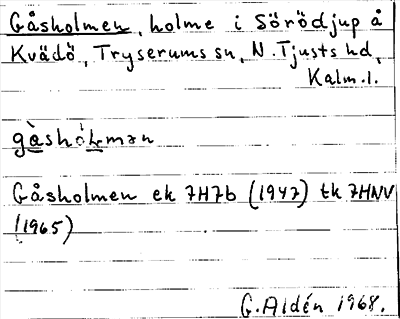 Gåsholmen, holme i Sörödjup å
Kvädö, Tryserums sn, N. Tjusts hd,
Kalm. l.
gàshólmən
Gåsholmen ek 7H7b (1947) tk 7HNV
(1965)
G. Aldén 1968.